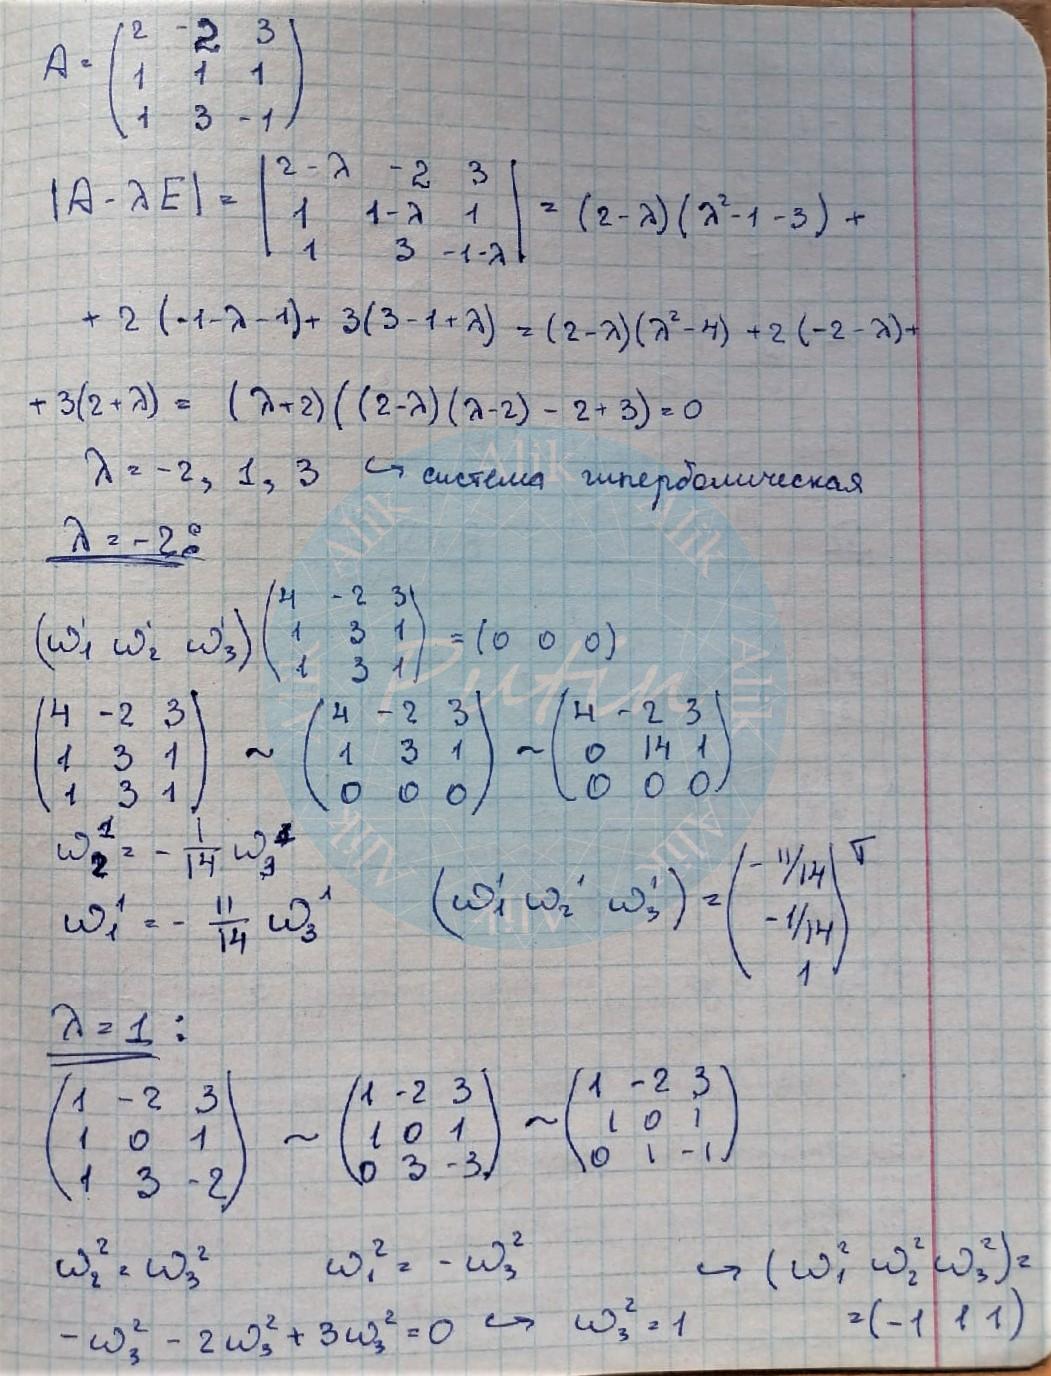 A = (2 -2 3
1 1 1
1 3 -1)
|A - λE| = |2-λ -2 3
1 1-λ 1
1 3 -1-λ| = (2-λ)(λ²-1-3) +
+ 2 (-1-λ-1) + 3(3-1+λ) = (2-λ)(λ²-4) + 2(-2-λ) +
+ 3(2+λ) = (λ+2)((2-λ)(λ-2) - 2+3) = 0
λ = -2, 1, 3 ↪ система гиперболическая
λ = -2:
(ω₁¹ ω₂¹ ω₃¹) (4 -2 3
1 3 1
1 3 1) = (0 0 0)
(4 -2 3
1 3 1
1 3 1) ~ (4 -2 3
1 3 1
0 0 0) ~ (4 -2 3
0 14 1
0 0 0)
ω₂¹ = - 1/14 ω₃¹
ω₁¹ = - 11/14 ω₃¹ (ω₁¹ ω₂¹ ω₃¹) = (-11/14
-1/14
1)ᵀ
λ = 1:
(1 -2 3
1 0 1
1 3 -2) ~ (1 -2 3
1 0 1
0 3 -3) ~ (1 -2 3
1 0 1
0 1 -1)
ω₂² = ω₃² ω₁² = -ω₃² ↪ (ω₁² ω₂² ω₃²) =
-ω₃² - 2ω₃² + 3ω₃² = 0 ↪ ω₃² = 1 = (-1 1 1)
Alik
Alik
Alik
Alik
Alik
Alik
Alik
Alik
Putin